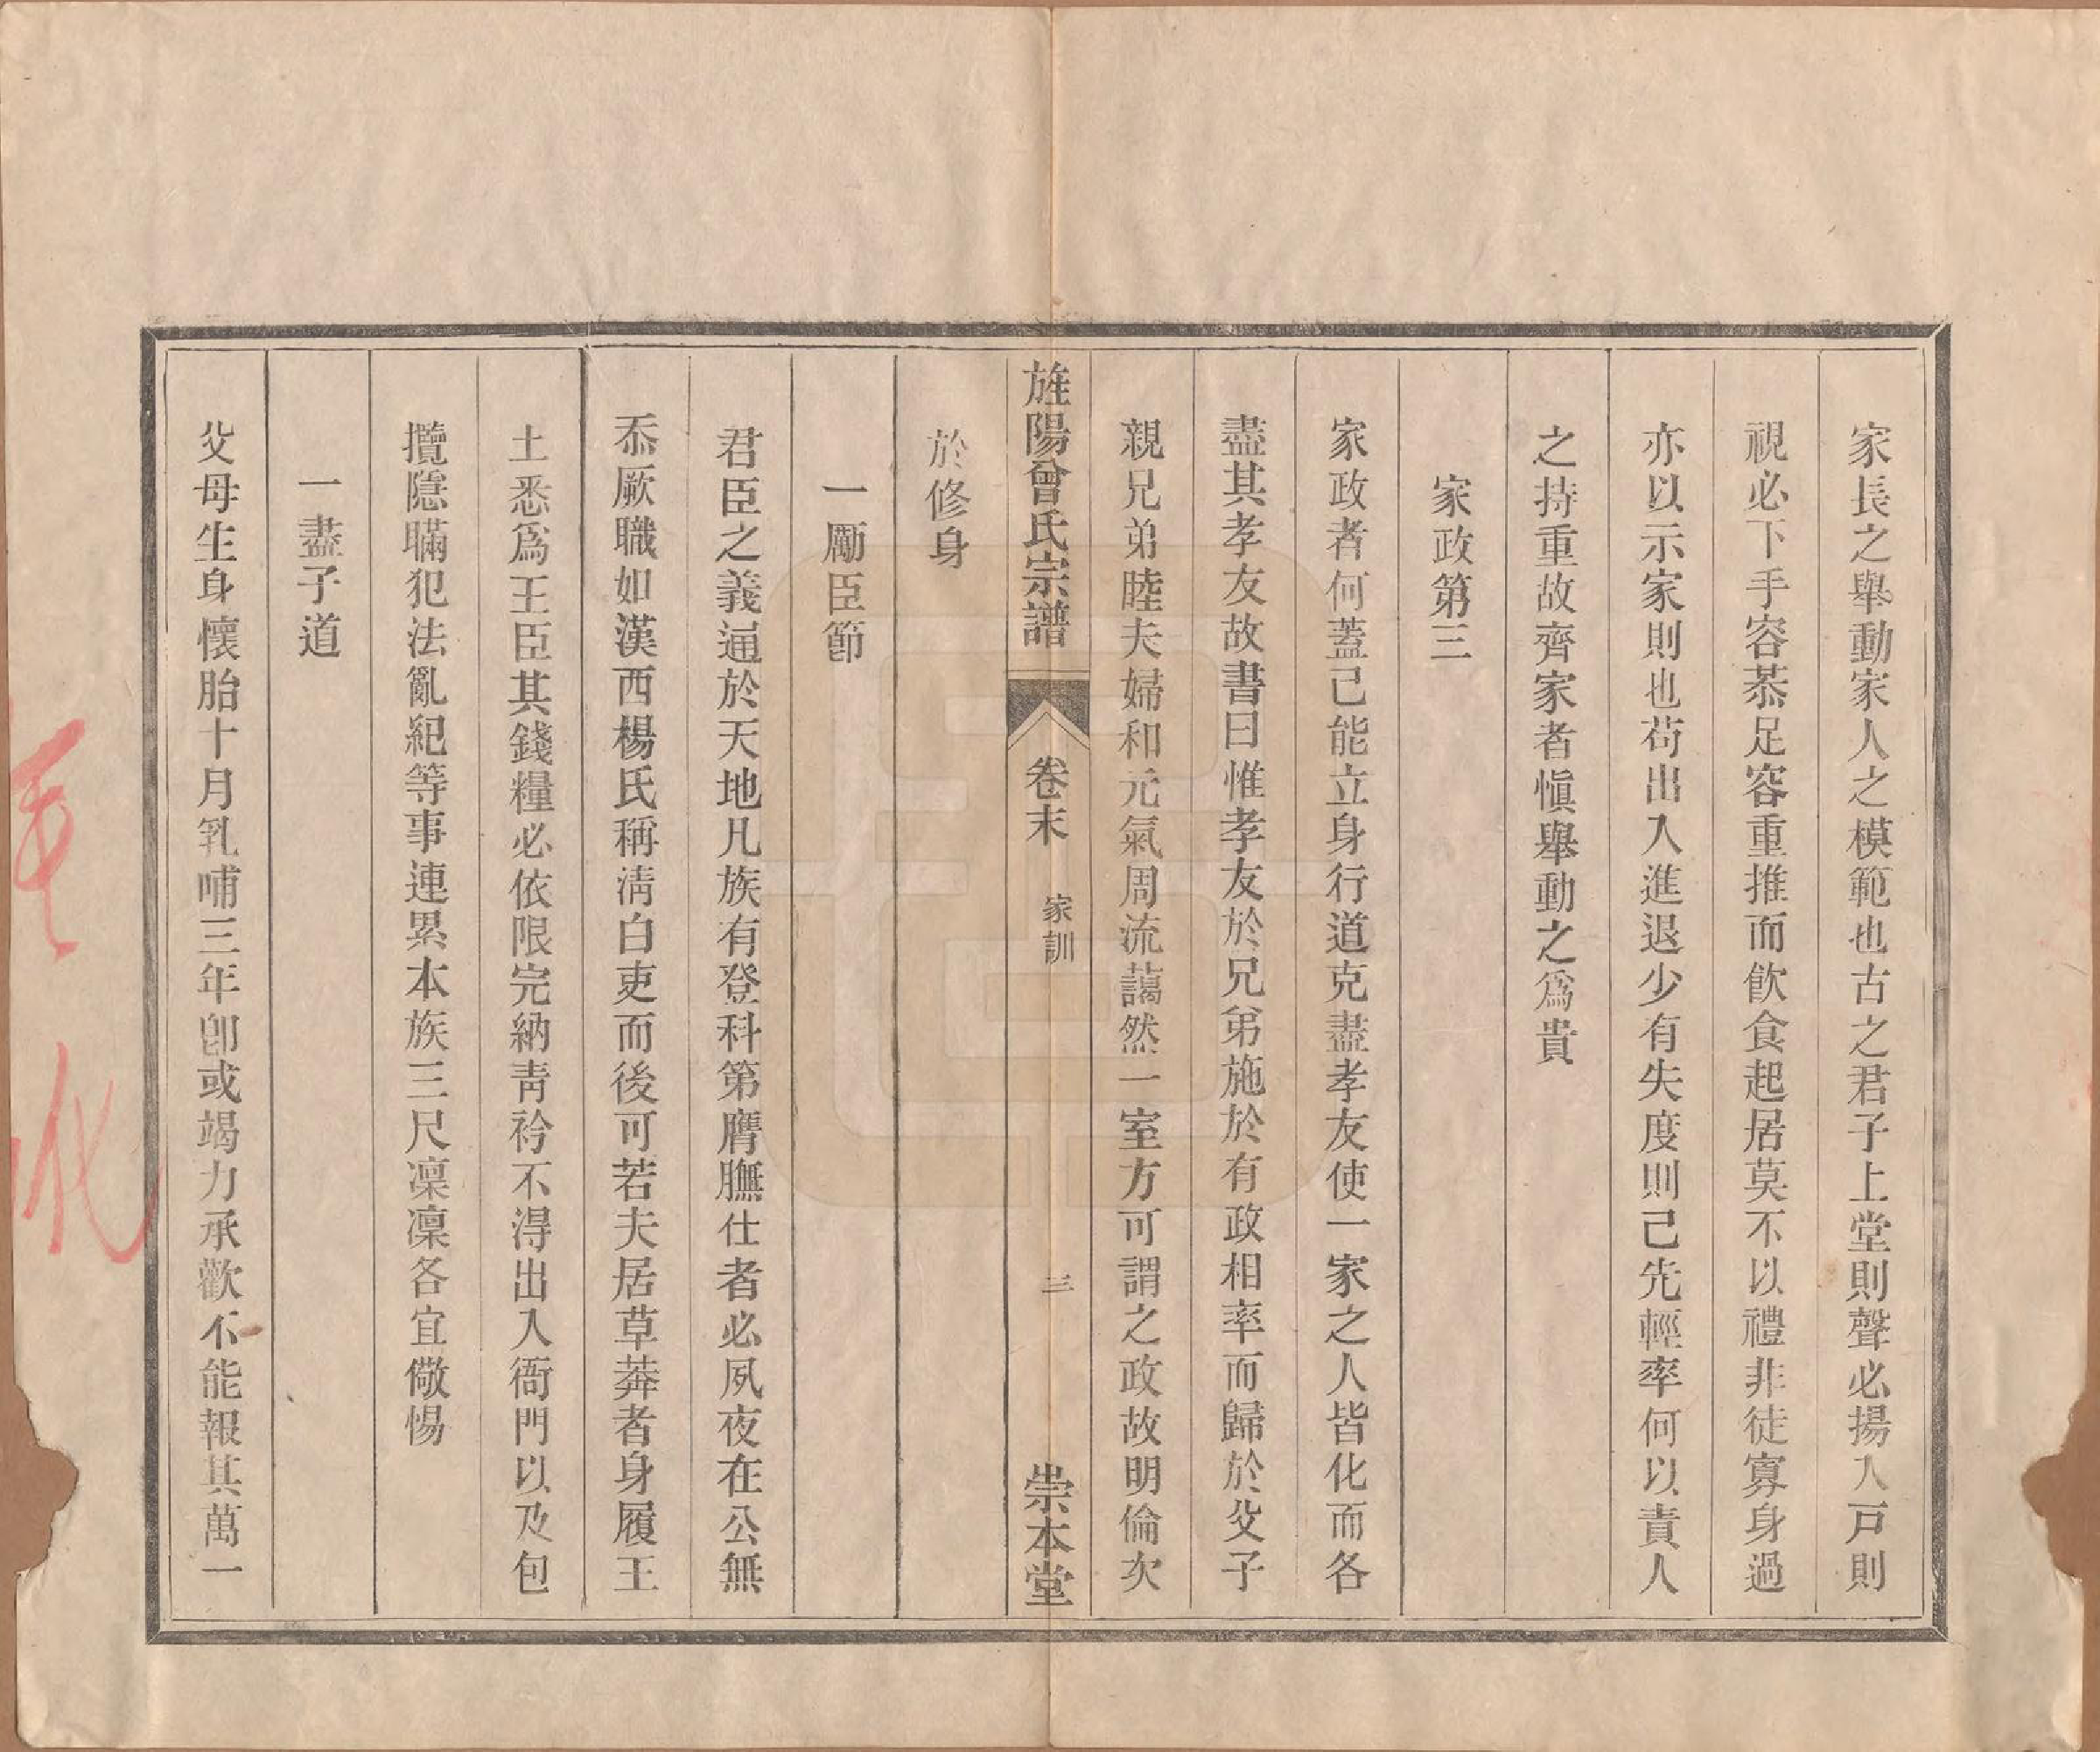 家長之舉動家人之模範也古之君子上堂則聲必揚入戸則
視必下手容恭足容重推而飮食起居莫不以禮非徒寡身過
亦以示家則也苟出入進退少有失度則己先輕率何以責人
之持重故齊家者愼舉動之爲貴
家政第三
家政者何蓋己能立身行道克盡孝友使一家之人皆化而各
盡其孝友故書曰惟孝友於兄弟施於有政相率而歸於父子
親兄弟睦夫婦和元氣周流藹然一室方可謂之政故明倫次
旌陽曾氏宗譜
卷末
家訓
三
崇本堂
於修身
一勵臣節
君臣之義通於天地凡族有登科第膺膴仕者必夙夜在公無
忝厥職如漢西楊氏稱淸白吏而後可若夫居草莽者身履王
土悉爲王臣其錢糧必依限完納靑衿不得出入衙門以及包
攬隱瞞犯法亂紀等事連累本族三尺凜凜各宜儆惕
一盡子道
父母生身懷胎十月乳哺三年卽或竭力承歡不能報其萬一